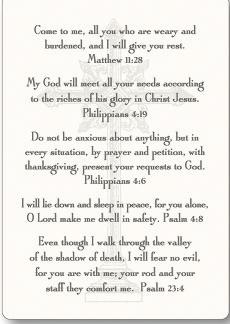 Come to me, all you who are weary and
burdened, and I will give you rest.
Matthew 11:28
My God will meet all your needs according
to the riches of his glory in Christ Jesus.
Philippians 4:19
Do not be anxious about anything, but in
every situation, by prayer and petition, with
thanksgiving, present your requests to God.
Philippians 4:6
I will lie down and sleep in peace, for you alone,
O Lord make me dwell in safety. Psalm 4:8
Even though I walk through the valley
of the shadow of death, I will fear no evil,
for you are with me; your rod and your
staff they comfort me. Psalm 23:4